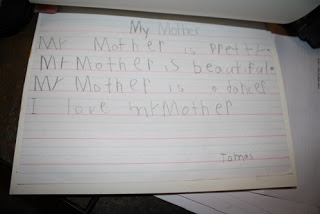 My Mother
My Mother is pretty.
My Mother is beautiful.
My Mother is a dancer
I love my Mother
Tomas